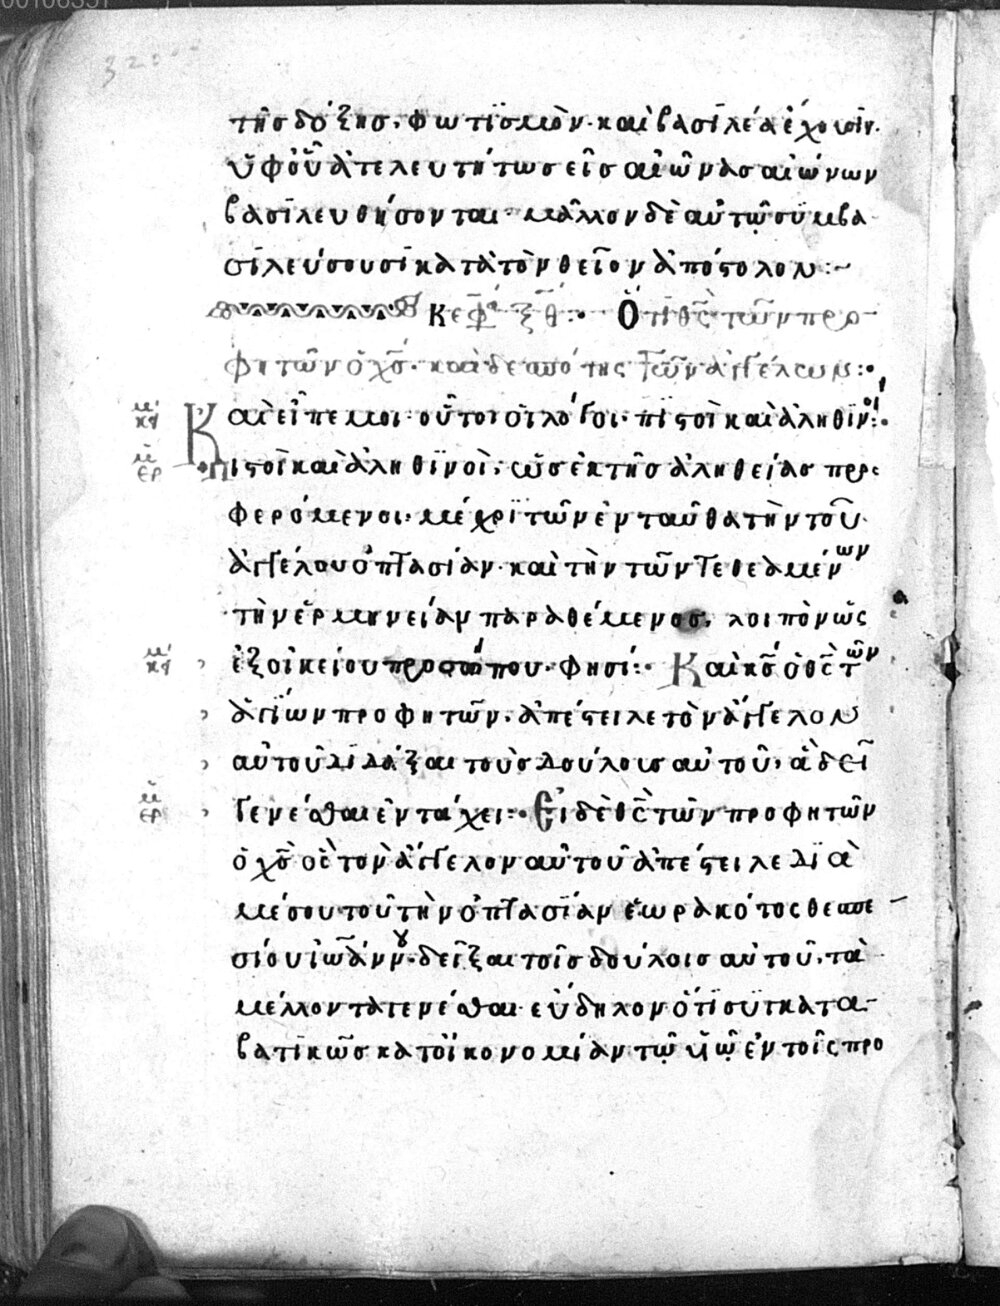 320
της δόξης· φωτισμὸν· καὶ βασιλέα ἔχουσιν·
ὑφ' οὗ ἀτελευτήτως εἰς αἰῶνας αἰώνων
βασιλευθήσονται· μᾶλλον δὲ αὐτῷ συμβα
σιλεύσουσι κατὰ τὸν θεῖον ἀπόστολον:~
Κεφ ξθ:· Ὅτι θς τῶν προ
φητῶν ὁ χς· καὶ δεσπότης τῶν ἀγγέλων:·
Καὶ εἶπέ μοι· οὗτοι οἱ λόγοι· πιστοὶ καὶ ἀληθινοί:·
Πιστοὶ καὶ ἀληθινοὶ· ὡς ἐκ τῆς ἀληθείας προ
φερόμενοι· μέχρι τῶν ἐνταῦθα τὴν τοῦ
ἀγγέλου ὀπτασίαν· καὶ τὴν τῶν τεθεαμένων
τὴν ἑρμηνείαν παραθέμενος· λοιπὸν ὡς
ἐξ οἰκείου προσώπου· φησί:· Καὶ κς ὁ θς τῶν
ἁγίων προφητῶν· ἀπέστειλε τὸν ἄγγελον
αὐτοῦ διδάξαι τοὺς δούλους αὐτοῦ· ἃ δεῖ
γενέσθαι ἐν τάχει:· Εἰ δὲ θς τῶν προφητῶν
ὁ χς ὃς τὸν ἄγγελον αὐτοῦ ἀπέστειλε διὰ
μέσου τοῦ τὴν ὀπτασίαν ἑωρακότος θεσπε
σίου ἰωάννου· δεῖξαι τοῖς δούλοις αὐτοῦ· τὰ
μέλλοντα γενέσθαι· εὔδηλον ὅτι συγκατα
βατικῶς κατ' οἰκονομίαν τῷ υἱῷ ἐν τοῖς προ